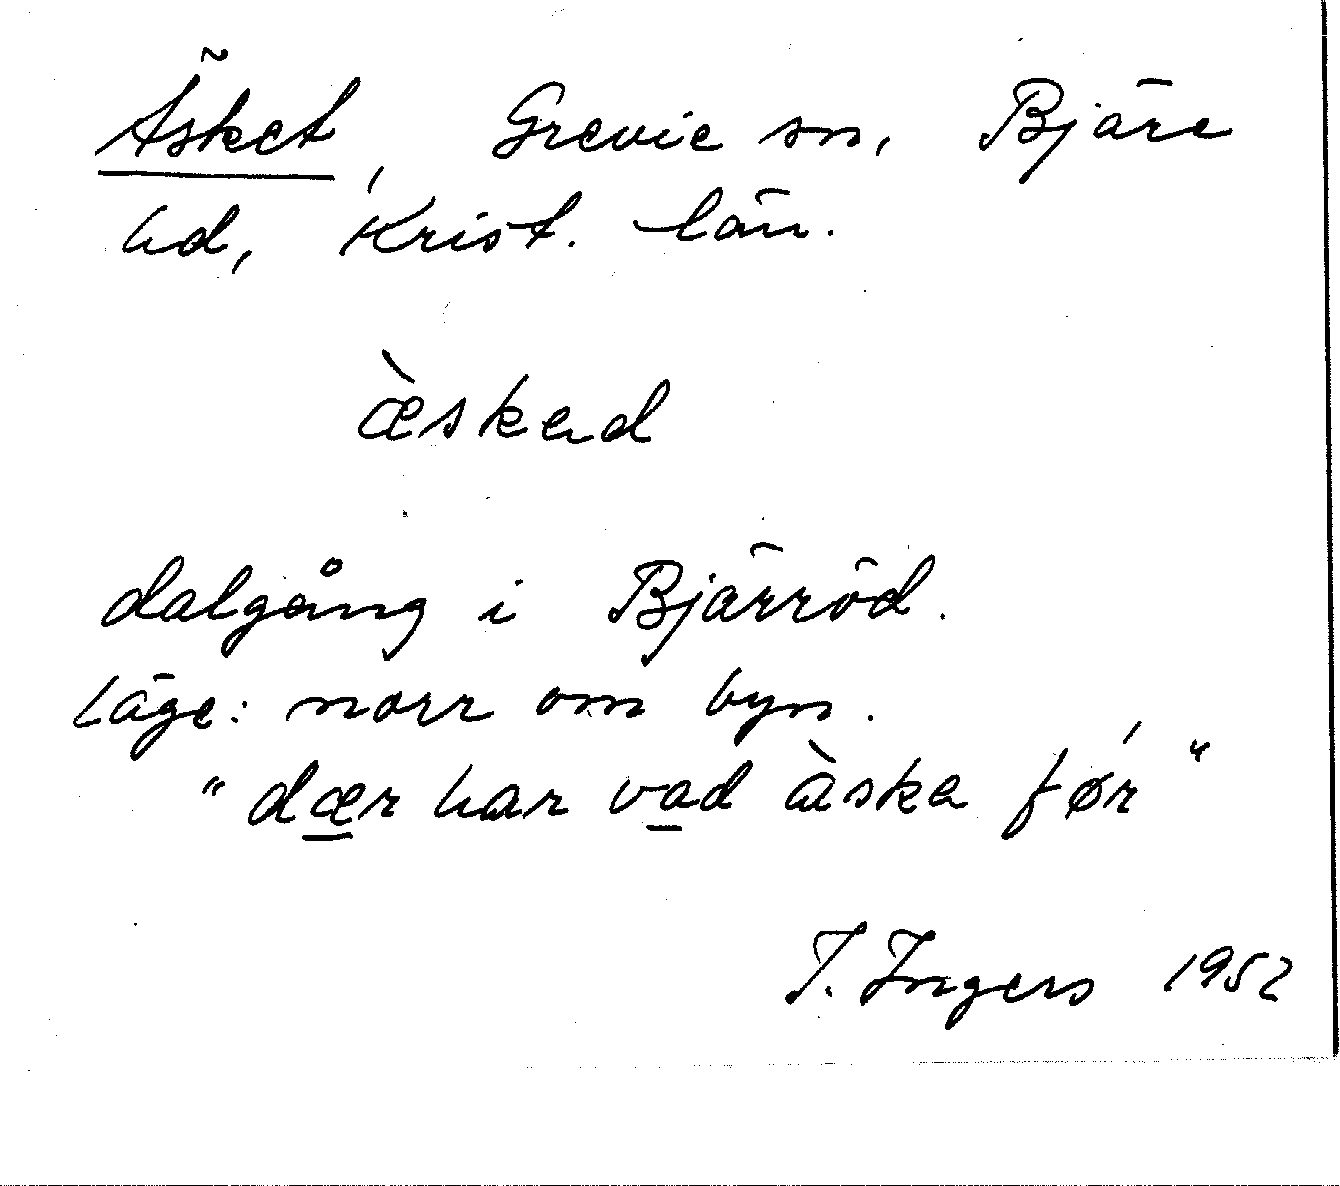 Äsket, Grevie sn, Bjäre
hd, Krist. län.
æ̀skad
dalgång i Bjärröd.
Läge: norr om byn.
"dær har vad æ̀ska før"
I. Ingers 1952